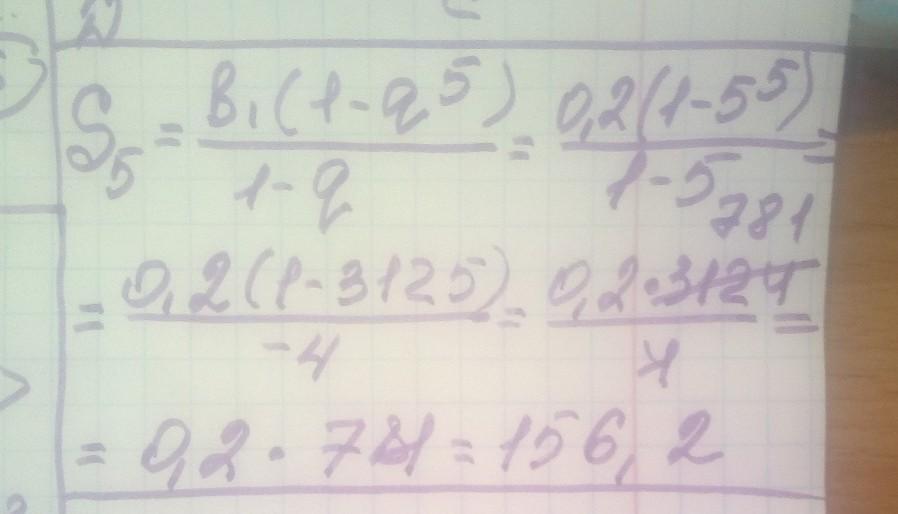 2)
S₅ = B₁(1-q⁵)/1-q = 0,2(1-5⁵)/1-5 =
781
= 0,2(1-3125)/-4 = 0,2·3124/4 =
= 0,2 · 781 = 156,2